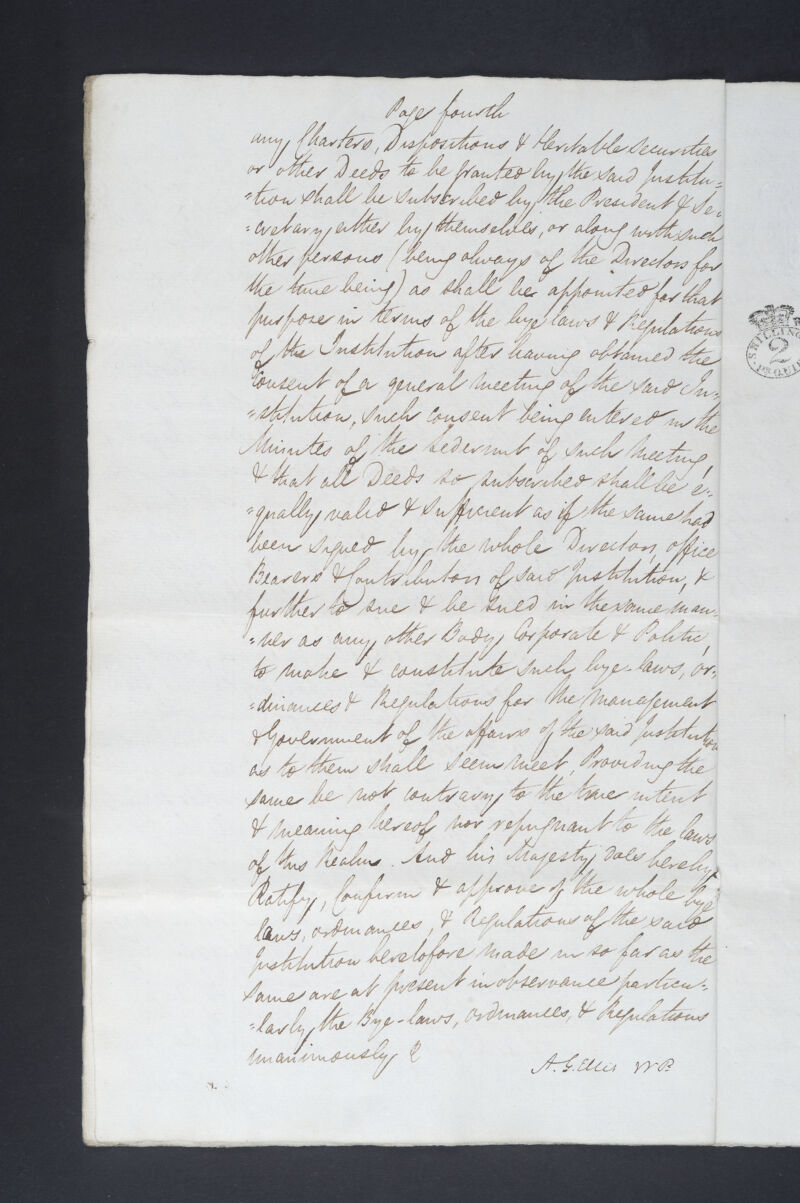 Page fourth
any Charters, Dispositions & Heritable securities
or other Deeds to be granted by the said Institu-
=tion shall be subscribed by the President & Se-
=cretary either by themselves, or along with such
other persons (being always of the Directors for
the time being) as shall be appointed for that
purpose in terms of the bye laws & Regulations
of the Institution after having obtained the
Consent of a general meeting of the said In-
=stitution, such consent being entered in the
Minutes of the Sederunt of such Meeting,
& that all Deeds so subscribed shall be e-
=qually valid & sufficient as if the same had
been signed by the whole Directors, office
Bearers & Contributors of said Institution, &
further to sue & be sued in the same man-
=ner as any other Body Corporate & Politic,
to make & constitute such bye-laws, or-
=dinances & Regulations for the Management
& Government of the affairs of the said Institution
as to them shall seem meet, Providing the
same be not contrary to the true intent
& meaning hereof nor repugnant to the laws
of this Realm. And his Majesty does hereby
Ratify, Confirm & approve of the whole bye
laws, ordinances, & Regulations of the said
Institution heretofore made in so far as the
same are at present in observance particu-
=larly the Bye-laws, ordinances, & Regulations
unanimously
A. G. Ellis VP.
SHILLING
2